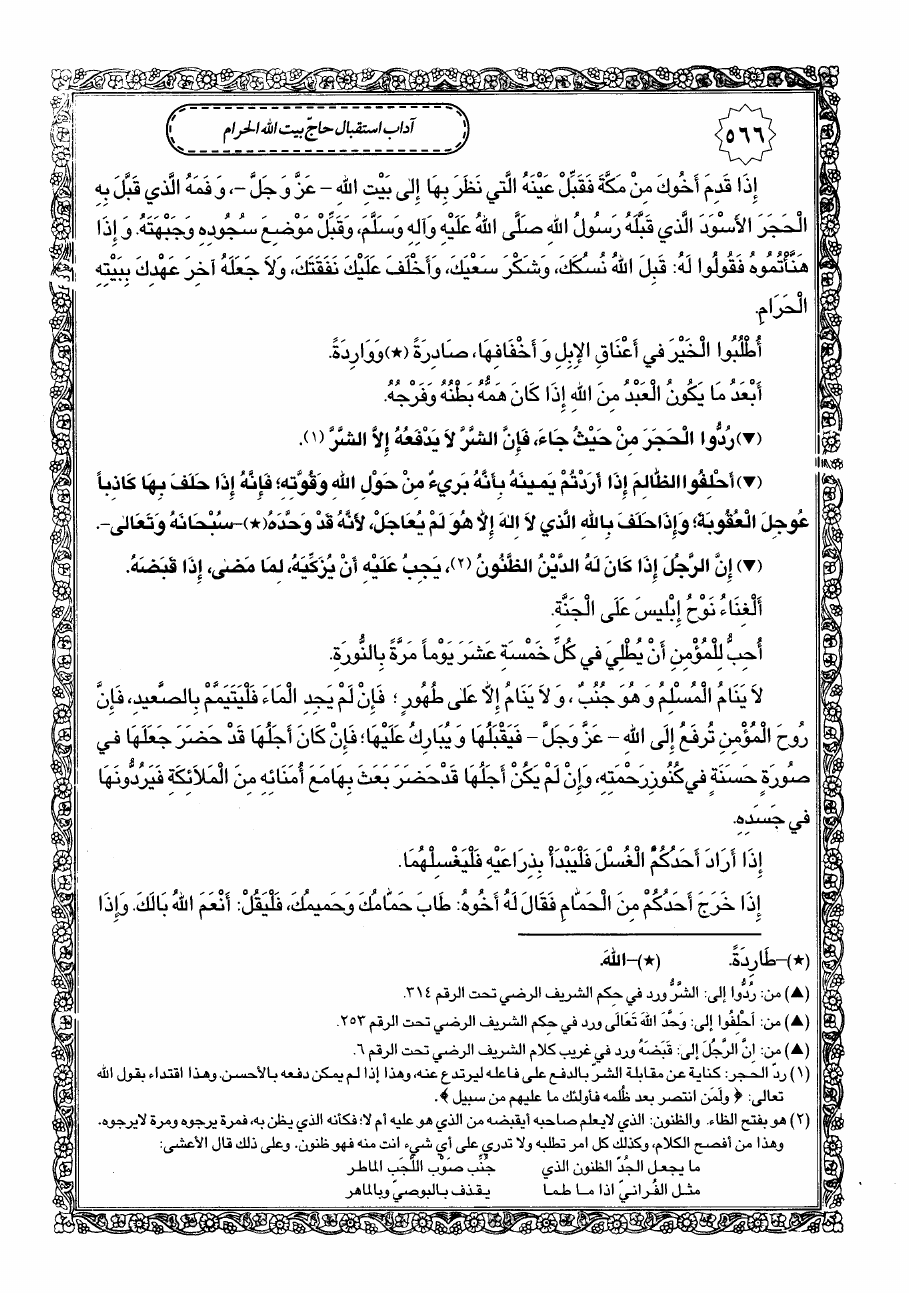 ٥٦٦
آداب استقبال حاجّ بيت الله الحرام
إِذَا قَدِمَ أَخُوكَ مِنْ مَكَّةَ فَقَبِّلْ عَيْنَهُ الَّتي نَظَرَ بِهَا إِلى بَيْتِ اللهِ – عَزَّ وَ جَلَّ –، وَ فَمَهُ الَّذي قَبَّلَ بِهِ
الْحَجَرَ الأَسْوَدَ الَّذي قَبَّلَهُ رَسُولُ اللهِ صَلَّى اللهُ عَلَيْهِ وَآلِهِ وَسَلَّمَ، وَقَبِّلْ مَوْضِعَ سُجُودِهِ وَجَبْهَتَهُ. وَ إِذَا
هَنَّأْتُمُوهُ فَقُولُوا لَهُ: قَبِلَ اللهُ نُسُكَكَ، وَشَكَرَ سَعْيَكَ، وَأَخْلَفَ عَلَيْكَ نَفَقَتَكَ، وَلاَ جَعَلَهُ آخِرَ عَهْدِكَ بِبَيْتِهِ
الْحَرَامِ.
أُطْلُبُوا الْخَيْرَ في أَعْنَاقِ الإِبِلِ وَ أَخْفَافِهَا، صَادِرَةً (★) وَوَارِدَةً.
أَبْعَدُ مَا يَكُونُ الْعَبْدُ مِنَ اللهِ إِذَا كَانَ هَمُّهُ بَطْنُهُ وَفَرْجُهُ.
(▼) رُدُّوا الْحَجَرَ مِنْ حَيْثُ جَاءَ، فَإِنَّ الشَّرَّ لاَ يَدْفَعُهُ إِلاَّ الشَّرُّ (١).
(▼) أَحْلِفُوا الظَّالِمَ إِذَا أَرَدْتُمْ يَمينَهُ بِأَنَّهُ بَريءٌ مِنْ حَوْلِ اللهِ وَقُوَّتِهِ؛ فَإِنَّهُ إِذَا حَلَفَ بِهَا كَاذِباً
عُوجِلَ الْعُقُوبَةَ؛ وَإِذَا حَلَفَ بِاللهِ الَّذي لاَ اِلهَ إِلاَّ هُوَ لَمْ يُعَاجَلْ، لأَنَّهُ قَدْ وَحَّدَهُ (★) –سُبْحَانَهُ وَتَعَالى–.
(▼) إِنَّ الرَّجُلَ إِذَا كَانَ لَهُ الدَّيْنُ الظَّنُونُ (٢)، يَجِبُ عَلَيْهِ أَنْ يُزَكِّيَهُ، لِمَا مَضى، إِذَا قَبَضَهُ.
أَلْغِنَاءُ نَوْحُ إِبْليسَ عَلَى الْجَنَّةِ.
أُحِبُّ لِلْمُؤْمِنِ أَنْ يُطْلِيَ في كُلِّ خَمْسَةِ عَشَرَ يَوْماً مَرَّةً بِالنُّورَةِ.
لاَ يَنَامُ الْمُسْلِمُ وَ هُوَ جُنُبٌ ، وَ لاَ يَنَامُ إِلاَّ عَلى طُهُورٍ ؛ فَإِنْ لَمْ يَجِدِ الْمَاءَ فَلْيَتَيَمَّمْ بِالصَّعيدِ، فَإِنَّ
رُوحَ الْمُؤْمِنِ تُرْفَعُ إِلَى اللهِ – عَزَّ وَجَلَّ – فَيَقْبَلُهَا وَ يُبَارِكُ عَلَيْهَا؛ فَإِنْ كَانَ أَجَلُهَا قَدْ حَضَرَ جَعَلَهَا في
صُورَةٍ حَسَنَةٍ في كُنُوزِ رَحْمَتِهِ، وَإِنْ لَمْ يَكُنْ أَجَلُهَا قَدْ حَضَرَ بَعَثَ بِهَا مَعَ أُمَنَائِهِ مِنَ الْمَلاَئِكَةِ فَيَرُدُّونَهَا
في جَسَدِهِ.
إِذَا أَرَادَ أَحَدُكُمُ الْغُسْلَ فَلْيَبْدَأْ بِذِرَاعَيْهِ فَلْيَغْسِلْهُمَا.
إِذَا خَرَجَ أَحَدُكُمْ مِنَ الْحَمَّامِ فَقَالَ لَهُ أَخُوهُ: طَابَ حَمَّامُكَ وَحَميمُكَ، فَلْيَقُلْ: أَنْعَمَ اللهُ بَالَكَ. وَإِذَا
(★)–طَارِدَةً. (★)–اللهَ.
(▲) من: رُدُّوا إلى: الشَّرُّ ورد في حكم الشريف الرضي تحت الرقم ٣١٤.
(▲) من: أَحْلِفُوا إلى: وَحَّدَ اللهَ تَعَالَى ورد في حِكم الشريف الرضي تحت الرقم ٢٥٣.
(▲) من: إِنَّ الرَّجُلَ إلى: قَبَضَهُ ورد في غريب كلام الشريف الرضي تحت الرقم ٦.
(١) ردّ الحجر: كناية عن مقابلة الشرّ بالدفع على فاعله ليرتدع عنه، وهذا إذا لم يمكن دفعه بالأحسن. وهذا اقتداء بقول الله
تعالى: ﴿ ولَمَن انتصر بعد ظُلمه فأولئك ما عليهم من سبيل ﴾.
(٢) هو بفتح الظاء. والظنون: الذي لا يعلم صاحبه أيقبضه من الذي هو عليه أم لا؛ فكأنه الذي يظن به، فمرة يرجوه ومرة لا يرجوه.
وهذا من أفصح الكلام، وكذلك كل امر تطلبه ولا تدري على أي شيء انت منه فهو ظنون. وعلى ذلك قال الأعشى:
ما يجعل الجُدّ الظنون الذي جُنِّب صَوْب اللَّجَب الماطر
مثل الفُراتيّ اذا ما طما يقذف بالبوصيّ وبالماهر